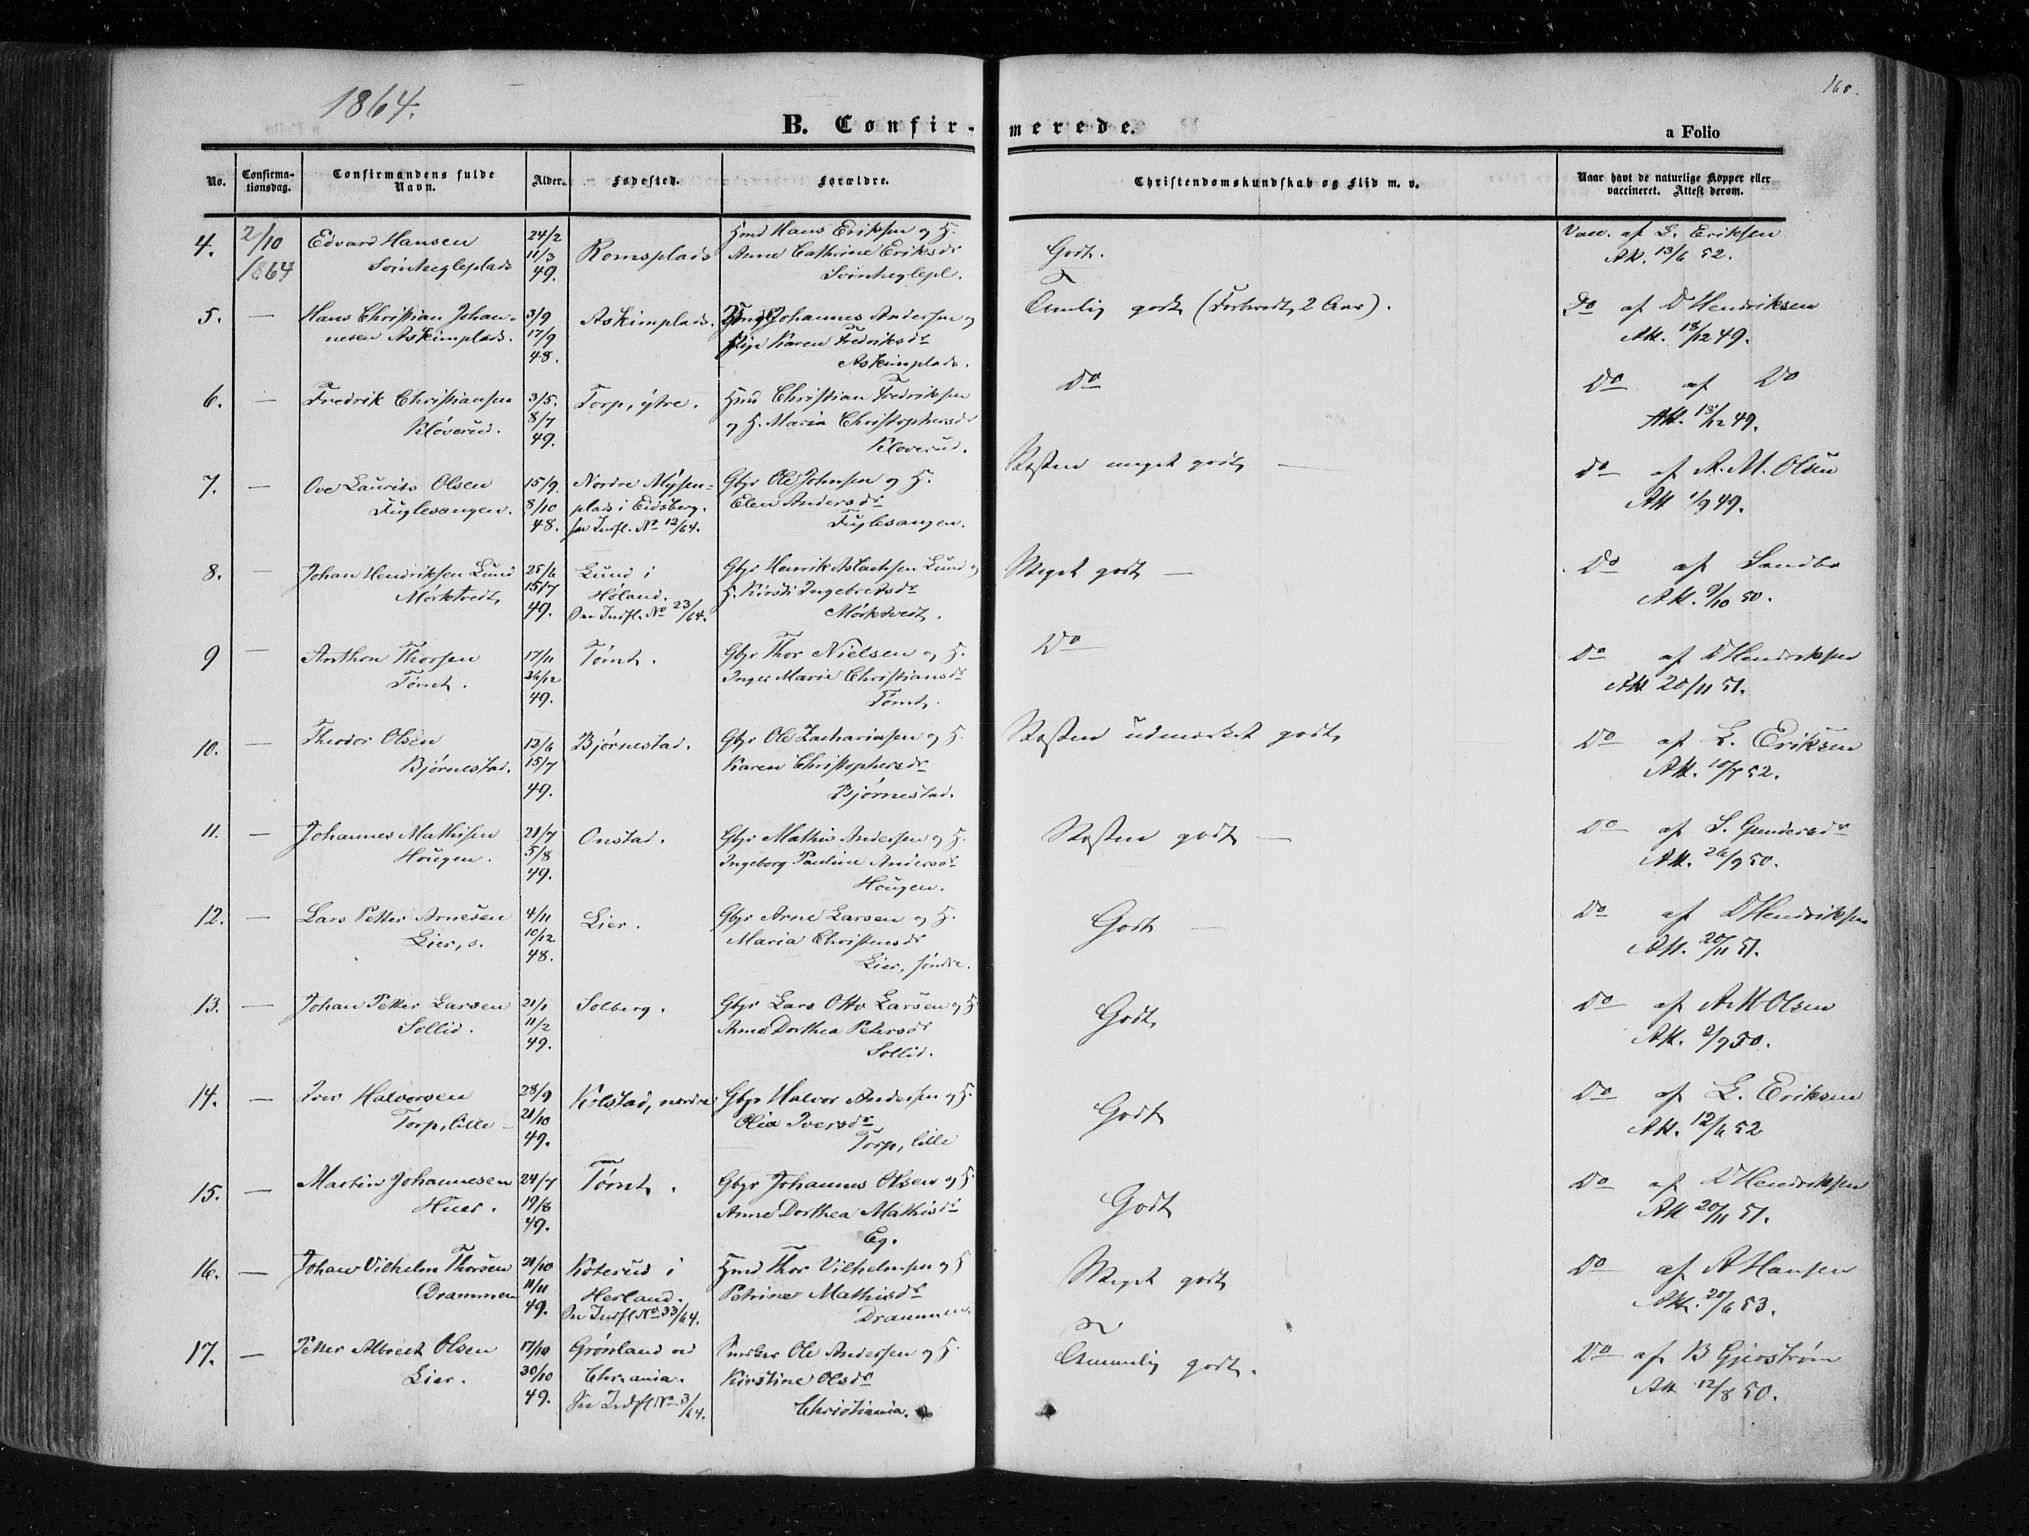 1864.
160.
B. Confir-merede.
a Folio
No.
Confirma-tionsdag.
Confirmandens fulde Navn.
Alder.
Fødested.
Forældre.
Christendomskundskab og Flid m. v.
Naar havt de naturlige Kopper eller vaccineret. Attest derom.
4. 2/10 1864 Edvard Hansen 24/2 Romsplads Hmd Hans Eriksen og H. Godt. Vacc. af L. Eriksen
11/3 Anne Cathrine Eriksdr Att. 13/6 52.
49.
5. — Hans Christian Johan- 3/9 Askimplads. Johannes Andersen og Temlig godt (Forberedt 2 Aar). Do af D Hendriksen
nesen Askimplads. 17/9 Pige Karen Fredriksdr Att. 18/12 49.
48. Askimplads.
6. — Fredrik Christiansen 3/5. Torp, ytre. Hmd Christian Fredriksen Do Do af Do
Kløverud. 8/7 og H. Maria Christophersdr Att. 18/12 49.
49. Kløverud.
7. — Ove Laurits Olsen 15/9. Nordre Mysen- Gbr Ole Johnsen og H. Næsten meget godt — do af A. M. Olsen
Fuglesangen. 8/10 plads i Eidsberg. Elen Andersdr Att 1/9 49.
48. se Indfl. No 12/64. Fuglesangen.
8. — Johan Hendriksen Lund 25/6 Lund i Gbr Henrik Aslachsen Lund og Meget godt — Do af Sandbo
Mørktvedt, 15/7 Høland. H. Kirsti Ingebretsdr Att. 9/10 50.
49. se Indfl. No 23/64. Mørktvedt.
9 — Anthon Thorsen 17/11 Tømt. Gbr Thor Nielsen og H. Do Do af D Hendriksen
Tømt. 26/12 Inger Marie Christiansdr Att 20/11 51.
49. Tømt.
10. — Theodor Olsen 12/6 Bjørnestad. Gbr Ole Zachariasen og H. Næsten udmærket godt, Do af L. Eriksen
Bjørnestad. 15/7 Karen Christophersdr Att. 10/7 52.
49. Bjørnestad.
11. — Johannes Mathisen 21/7 Onstad. Gbr Mathis Andersen og H. Næsten godt — Do af S. Gundersdr
Hougen. 5/8 Ingeborg Pauline Andersdr Att. 26/9 50.
49. Hougen.
12. — Lars Petter Arnesen 4/11 Lier. Gbr Arne Larsen og H. Godt — Do af D Hendriksen
Lier, s. 10/12 Maria Christensdr Att. 20/11 51.
48. Lier, søndre.
13. — Johan Petter Larsen 21/1 Solberg. Gbr Lars Otto Larsen og H Godt, Do af A M Olsen
Sollid. 11/2 Anne Dorthea Petersdr Att. 2/9 50.
49. Sollid.
14. — Iver Halvorsen 28/9 Kolstad, nordre Gbr Halvor Andersen og H. Godt Do af L. Eriksen
Torp, lille 21/10 Olia Iversdr Att. 12/6 52
49. Torp, lille
15. — Martin Johannesen 24/7 Tømt. Gbr Johannes Olsen og H. Godt Do af D Hendriksen
Huer. 19/8 Anne Dorthea Mathisdr Att 20/11 51.
49. Eg.
16. — Johan Vilhelm Thorsen 21/10 Koterud i Hmd Thor Vilhelmsen og H Meget godt, Do af A Hansen
Drammen 11/11 Herland. Petrine Mathisdr Att. 20/6 53.
49. se Indfl No 33/64. Drammen.
17. — Petter Albrect Olsen 17/10 Grønland ved Ole Andersen og H. Temmelig godt. Do af B Gjerstrøm
Lier. 30/10 Chr.ania. Kirstine Olsdr Att 12/8 50.
49. se Indfl No 3/64. Christiania.